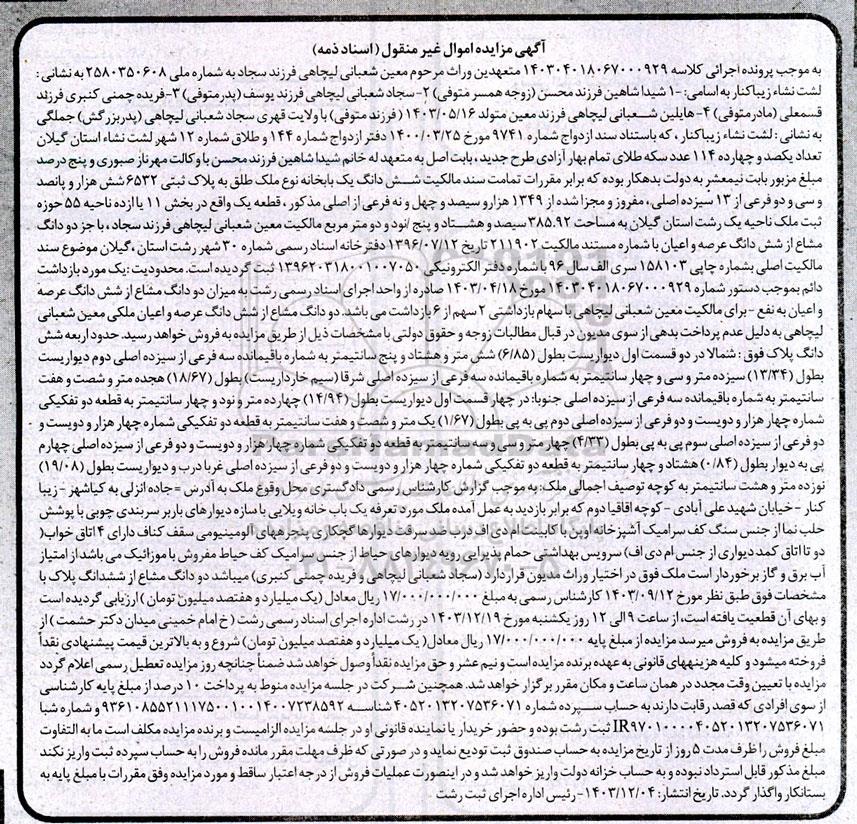 آگهی مزایده اموال غیر منقول (اسناد ذمه)
به موجب پرونده اجرائی کلاسه ۱۴۰۳۰۴۰۱۸۰۶۷۰۰۰۹۲۹ متعهدین وراث مرحوم معین شعبانی لیچاهی فرزند سجاد به شماره ملی ۲۵۸۰۳۵۰۶۰۸ به نشانی :
لشت نشاء زیباکنار به اسامی: ۱- شیدا شاهین فرزند محسن (زوجه همسر متوفی) ۲- سجاد شعبانی لیچاهی فرزند یوسف (پدر متوفی) ۳- فریده چمنی کنبری فرزند
قسمعلی (مادر متوفی) ۴- هایلین شعبانی لیچاهی فرزند معین متولد ۱۴۰۳/۰۵/۱۶ (فرزند متوفی) با ولایت قهری سجاد شعبانی لیچاهی (پدربزرگش) جملگی
به نشانی : لشت نشاء زیباکنار ، که باستناد سند ازدواج شماره ۹۷۴۱ مورخ ۱۴۰۰/۰۳/۲۵ دفتر ازدواج شماره ۱۴۴ و طلاق شماره ۱۲ شهر لشت نشاء استان گیلان
تعداد یکصد و چهارده ۱۱۴ عدد سکه طلای تمام بهار آزادی طرح جدید ، بابت اصل به متعهد له خانم شیدا شاهین فرزند محسن با وکالت مهرناز صبوری و پنج درصد
مبلغ مزبور بابت نیمعشر به دولت بدهکار بوده که برابر مقررات تمامت سند مالکیت شش دانگ یک بابخانه نوع ملک طلق به پلاک ثبتی ۶۵۳۲ شش هزار و پانصد
و سی و دو فرعی از ۱۳ سیزده اصلی ، مفروز و مجزا شده از ۱۳۴۹ هزار و سیصد و چهل و نه فرعی از اصلی مذکور ، قطعه یک واقع در بخش ۱۱ یازده ناحیه ۵۵ حوزه
ثبت ملک ناحیه یک رشت استان گیلان به مساحت ۳۸۵.۹۲ سیصد و هشتاد و پنج /نود و دو متر مربع مالکیت معین شعبانی لیچاهی فرزند سجاد ، با جز دو دانگ
مشاع از شش دانگ عرصه و اعیان با شماره مستند مالکیت ۲۱۱۹۰۲ تاریخ ۱۳۹۶/۰۷/۱۲ دفتر خانه اسناد رسمی شماره ۳۰ شهر رشت استان ، گیلان موضوع سند
مالکیت اصلی بشماره چاپی ۱۵۸۱۰۳ سری الف سال ۹۶ با شماره دفتر الکترونیکی ۱۳۹۶۲۰۳۱۸۰۰۱۰۰۷۰۵۰ ثبت گردیده است. محدودیت : یک مورد بازداشت
دائم بموجب دستور شماره ۱۴۰۳۰۴۰۱۸۰۶۷۰۰۰۹۲۹ مورخ ۱۴۰۳/۰۴/۱۸ صادره از واحد اجرای اسناد رسمی رشت به میزان دو دانگ مشاع از شش دانگ عرصه
و اعیان به نفع - برای مالکیت معین شعبانی لیچاهی با سهام بازداشتی ۲ سهم از ۶ بازداشت می باشد. دو دانگ مشاع از شش دانگ عرصه و اعیان ملکی معین شعبانی
لیچاهی به دلیل عدم پرداخت بدهی از سوی مدیون در قبال مطالبات زوجه و حقوق دولتی با مشخصات ذیل از طریق مزایده به فروش خواهد رسید. حدود اربعه شش
دانگ پلاک فوق : شمالا در دو قسمت اول دیواریست بطول (۶/۸۵) شش متر و هشتاد و پنج سانتیمتر به شماره باقیمانده سه فرعی از سیزده اصلی دوم دیواریست
بطول (۱۳/۳۴) سیزده متر و سی و چهار سانتیمتر به شماره باقیمانده سه فرعی از سیزده اصلی شرقا (سیم خاردار یست) بطول (۱۸/۶۷) هجده متر و شصت و هفت
سانتیمتر به شماره باقیمانده سه فرعی از سیزده اصلی جنوبا: در چهار قسمت اول دیواریست بطول (۱۴/۹۴) چهارده متر و نود و چهار سانتیمتر به قطعه دو تفکیکی
شماره چهار هزار و دویست و دو فرعی از سیزده اصلی دوم پی به پی بطول (۱/۶۷) یک متر و شصت و هفت سانتیمتر به قطعه دو تفکیکی شماره چهار هزار و دویست و
دو فرعی از سیزده اصلی سوم پی به پی بطول (۴/۳۳) چهار متر و سی و سه سانتیمتر به قطعه دو تفکیکی شماره چهار هزار و دویست و دو فرعی از سیزده اصلی چهارم
پی به دیوار بطول (۰/۸۴) هشتاد و چهار سانتیمتر به قطعه دو تفکیکی شماره چهار هزار و دویست و دو فرعی از سیزده اصلی غربا درب و دیواریست بطول (۱۹/۰۸)
نوزده متر و هشت سانتیمتر به کوچه توصیف اجمالی ملک: به موجب گزارش کارشناس رسمی دادگستری محل وقوع ملک به آدرس = جاده انزلی به کیاشهر - زیبا
کنار - خیابان شهید علی آبادی - کوچه اقاقیا دوم که برابر بازدید به عمل آمده ملک مورد تعرفه یک باب خانه ویلایی با سازه دیوارهای باربر سربندی چوبی با پوشش
حلب نما از جنس سنگ کف سرامیک آشپزخانه اوپن با کابینت ام دی اف درب ضد سرقت دیوارها گچکاری پنجرههای آلومینیومی سقف کناف دارای ۴ اتاق خواب(
دو تا اتاق کمد دیواری از جنس ام دی اف) سرویس بهداشتی حمام پذیرایی رویه دیوارهای حیاط از جنس سرامیک کف حیاط مفروش با موزائیک می باشد از امتیاز
آب برق و گاز برخوردار است ملک فوق در اختیار وراث مدیون قرار دارد (سجاد شعبانی لیچاهی و فریده چمنی کنبری) میباشد دو دانگ مشاع از ششدانگ پلاک با
مشخصات فوق طبق نظر مورخ ۱۴۰۳/۰۹/۱۲ کارشناس رسمی به مبلغ ۱۷/۰۰۰/۰۰۰/۰۰۰ ریال معادل (یک میلیارد و هفتصد میلیون تومان ) ارزیابی گردیده است
و بهای آن قطعیت یافته است، از ساعت ۹ الی ۱۲ روز یکشنبه مورخ ۱۴۰۳/۱۲/۱۹ در رشت اداره اجرای اسناد رسمی رشت ( خ امام خمینی میدان دکتر حشمت ) از
طریق مزایده به فروش میرسد مزایده از مبلغ پایه ۱۷/۰۰۰/۰۰۰/۰۰۰ ریال معادل( یک میلیارد و هفتصد میلیون تومان) شروع و به بالاترین قیمت پیشنهادی نقداً
فروخته میشود و کلیه هزینههای قانونی به عهده برنده مزایده است و نیم عشر و حق مزایده نقداً وصول خواهد شد ضمناً چنانچه روز مزایده تعطیل رسمی اعلام گردد
مزایده با تعیین وقت مجدد در همان ساعت و مکان مقرر برگزار خواهد شد. همچنین شرکت در جلسه مزایده منوط به پرداخت ۱۰ درصد از مبلغ پایه کارشناسی
از سوی افرادی که قصد رقابت دارند به حساب سپرده شماره ۴۰۵۲۰۱۳۲۰۷۵۳۶۰۷۱ شناسه ۹۳۶۱۰۸۵۵۲۱۱۱۷۵۰۰۱۰۰۱۴۰۰۷۲۳۸۵۹۲ و شماره شبا
IR۹۷۰۱۰۰۰۰۴۰۵۲۰۱۳۲۰۷۵۳۶۰۷۱ ثبت رشت بوده و حضور خریدار یا نماینده قانونی او در جلسه مزایده الزامیست و برنده مزایده مکلف است ما به التفاوت
مبلغ فروش را ظرف مدت ۵ روز از تاریخ مزایده به حساب صندوق ثبت تودیع نماید و در صورتی که ظرف مهلت مقرر مانده فروش را به حساب سپرده ثبت واریز نکند
مبلغ مذکور قابل استرداد نبوده و به حساب خزانه دولت واریز خواهد شد و در اینصورت عملیات فروش از درجه اعتبار ساقط و مورد مزایده وفق مقررات با مبلغ پایه به
بستانکار واگذار گردد. تاریخ انتشار: ۱۴۰۳/۱۲/۰۴ - رئیس اداره اجرای ثبت رشت